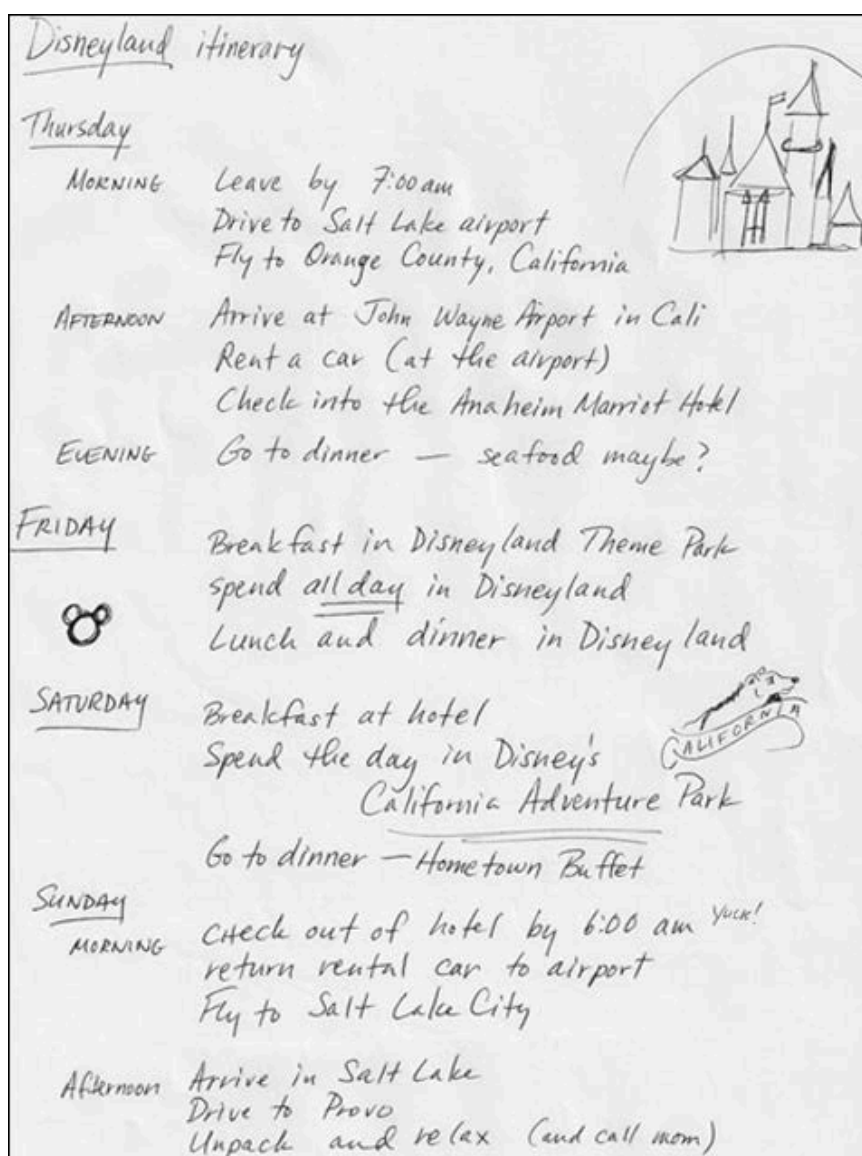 Disneyland itinerary
Thursday
MORNING Leave by 7:00 am
Drive to Salt Lake airport
Fly to Orange County, California
AFTERNOON Arrive at John Wayne Airport in Cali
Rent a car (at the airport)
Check into the Anaheim Marriot Hotel
EVENING Go to dinner — seafood maybe?
FRIDAY Breakfast in Disneyland Theme Park
spend all day in Disneyland
Lunch and dinner in Disneyland
SATURDAY Breakfast at hotel
CALIFORNIA
Spend the day in Disney's
California Adventure Park
Go to dinner — Hometown Buffet
SUNDAY
MORNING CHeck out of hotel by 6:00 am YUCK!
return rental car to airport
Fly to Salt Lake City
Afternoon Arrive in Salt Lake
Drive to Provo
Unpack and relax (and call mom)